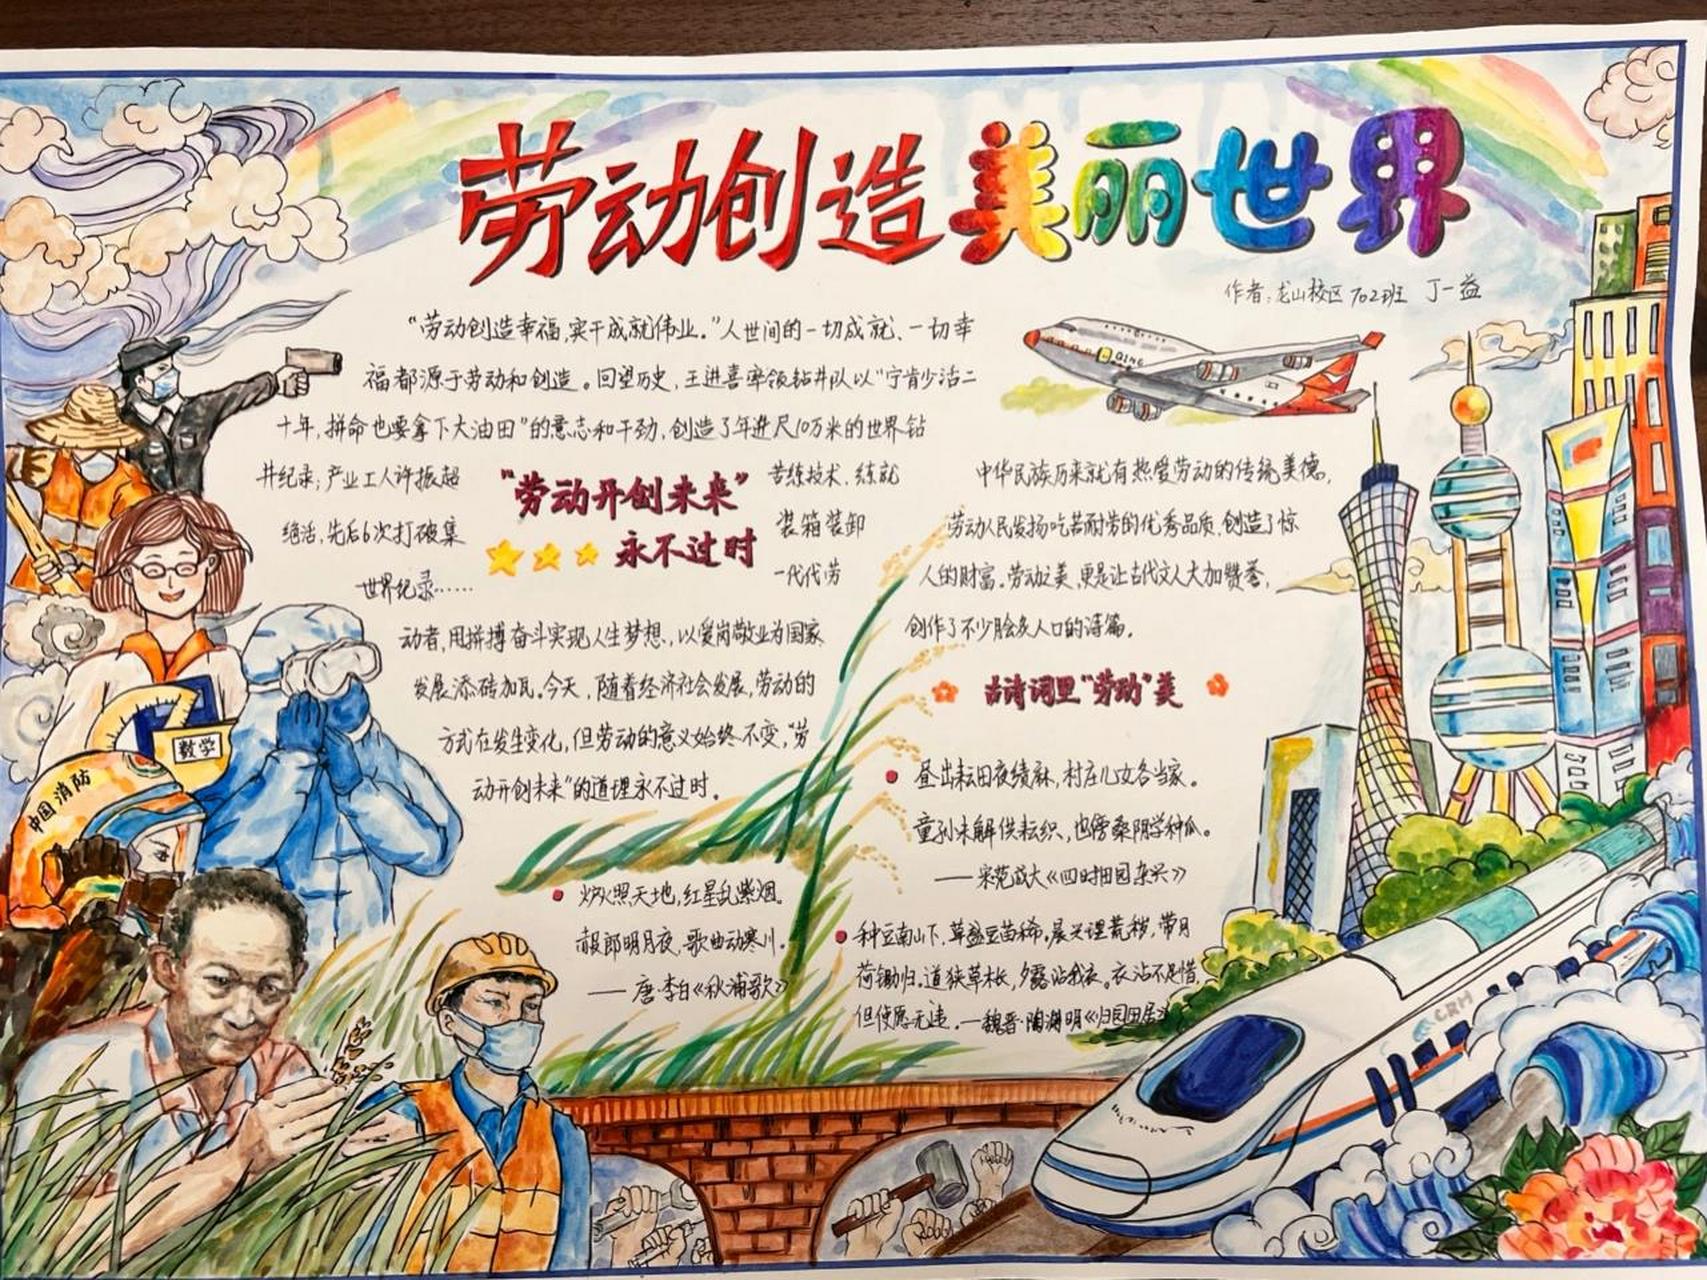 劳动创造美丽世界
作者：龙山校区702班 丁一益
“劳动创造幸福,实干成就伟业。”人世间的一切成就、一切幸
福都源于劳动和创造。回望历史，王进喜率领钻井队以“宁肯少活二
十年，拼命也要拿下大油田”的意志和干劲，创造了年进尺10万米的世界钻
井纪录；产业工人许振超
苦练技术、练就
绝活，先后6次打破集
装箱装卸
世界纪录……
一代代劳
“劳动开创未来”
永不过时
动者，用拼搏奋斗实现人生梦想、以爱岗敬业为国家
发展添砖加瓦。今天，随着经济社会发展，劳动的
方式在发生变化，但劳动的意义始终不变，“劳
动开创未来”的道理永不过时。
炉火照天地，红星乱紫烟。
赧郎明月夜，歌曲动寒川。
——唐·李白《秋浦歌》
中华民族历来就有热爱劳动的传统美德。
劳动人民发扬吃苦耐劳的优秀品质，创造了惊
人的财富。劳动之美，更是让古代文人大加赞誉，
创作了不少脍炙人口的诗篇。
古诗词里“劳动”美
昼出耘田夜绩麻，村庄儿女各当家。
童孙未解供耘织、也傍桑阴学种瓜。
——宋范成大《四时田园杂兴》
种豆南山下，草盛豆苗稀。晨兴理荒秽，带月
荷锄归。道狭草木长，夕露沾我衣。衣沾不足惜，
但使愿无违。—魏晋·陶渊明《归园田居》
数学
中国消防
CRH